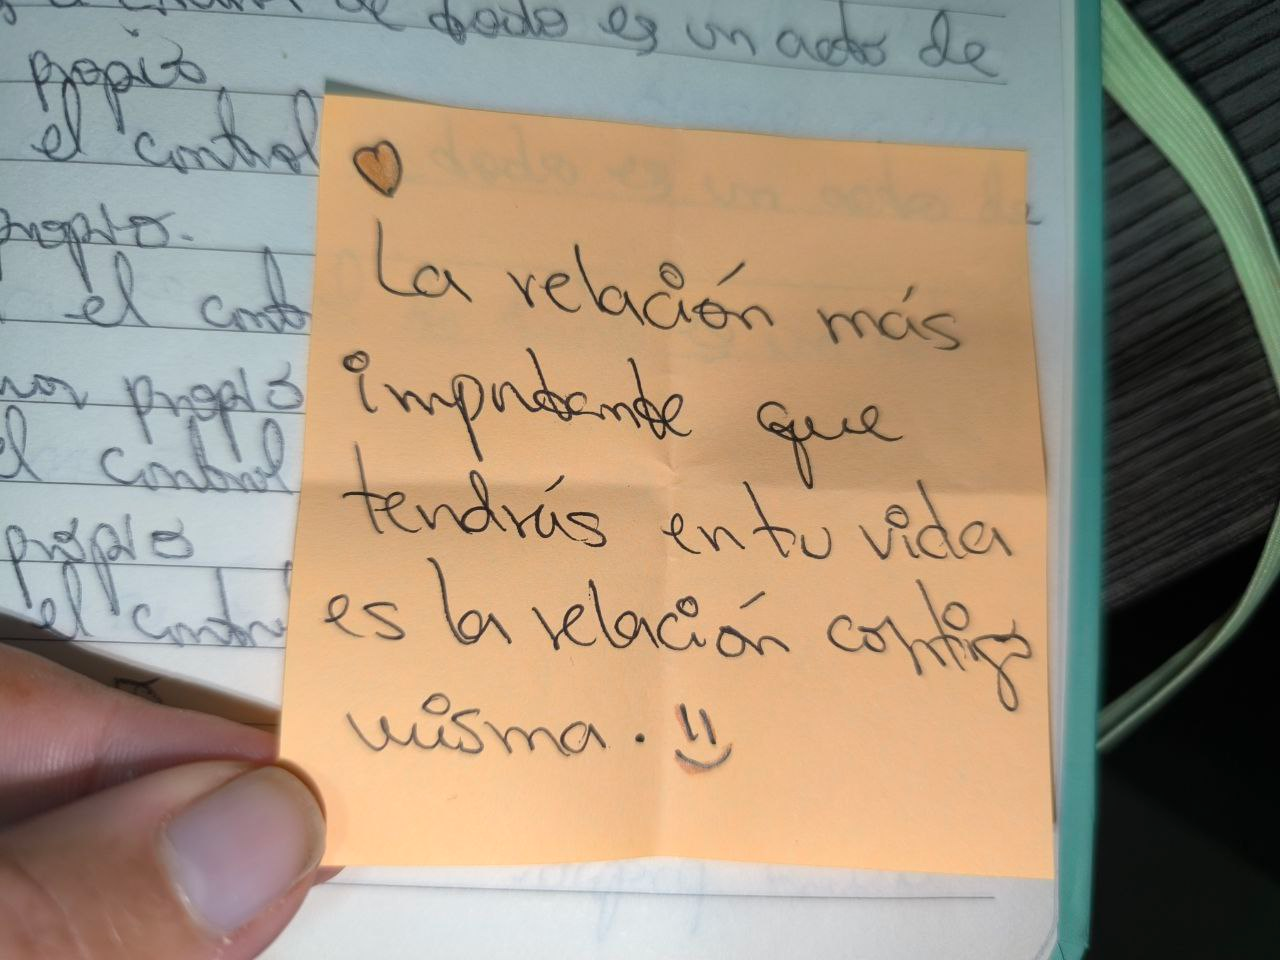 de todo es un acto de
propio
el control
propio.
el cont
propio
el control
propio
el contro
La relación más
importante que
tendrás en tu vida
es la relación contigo
misma.